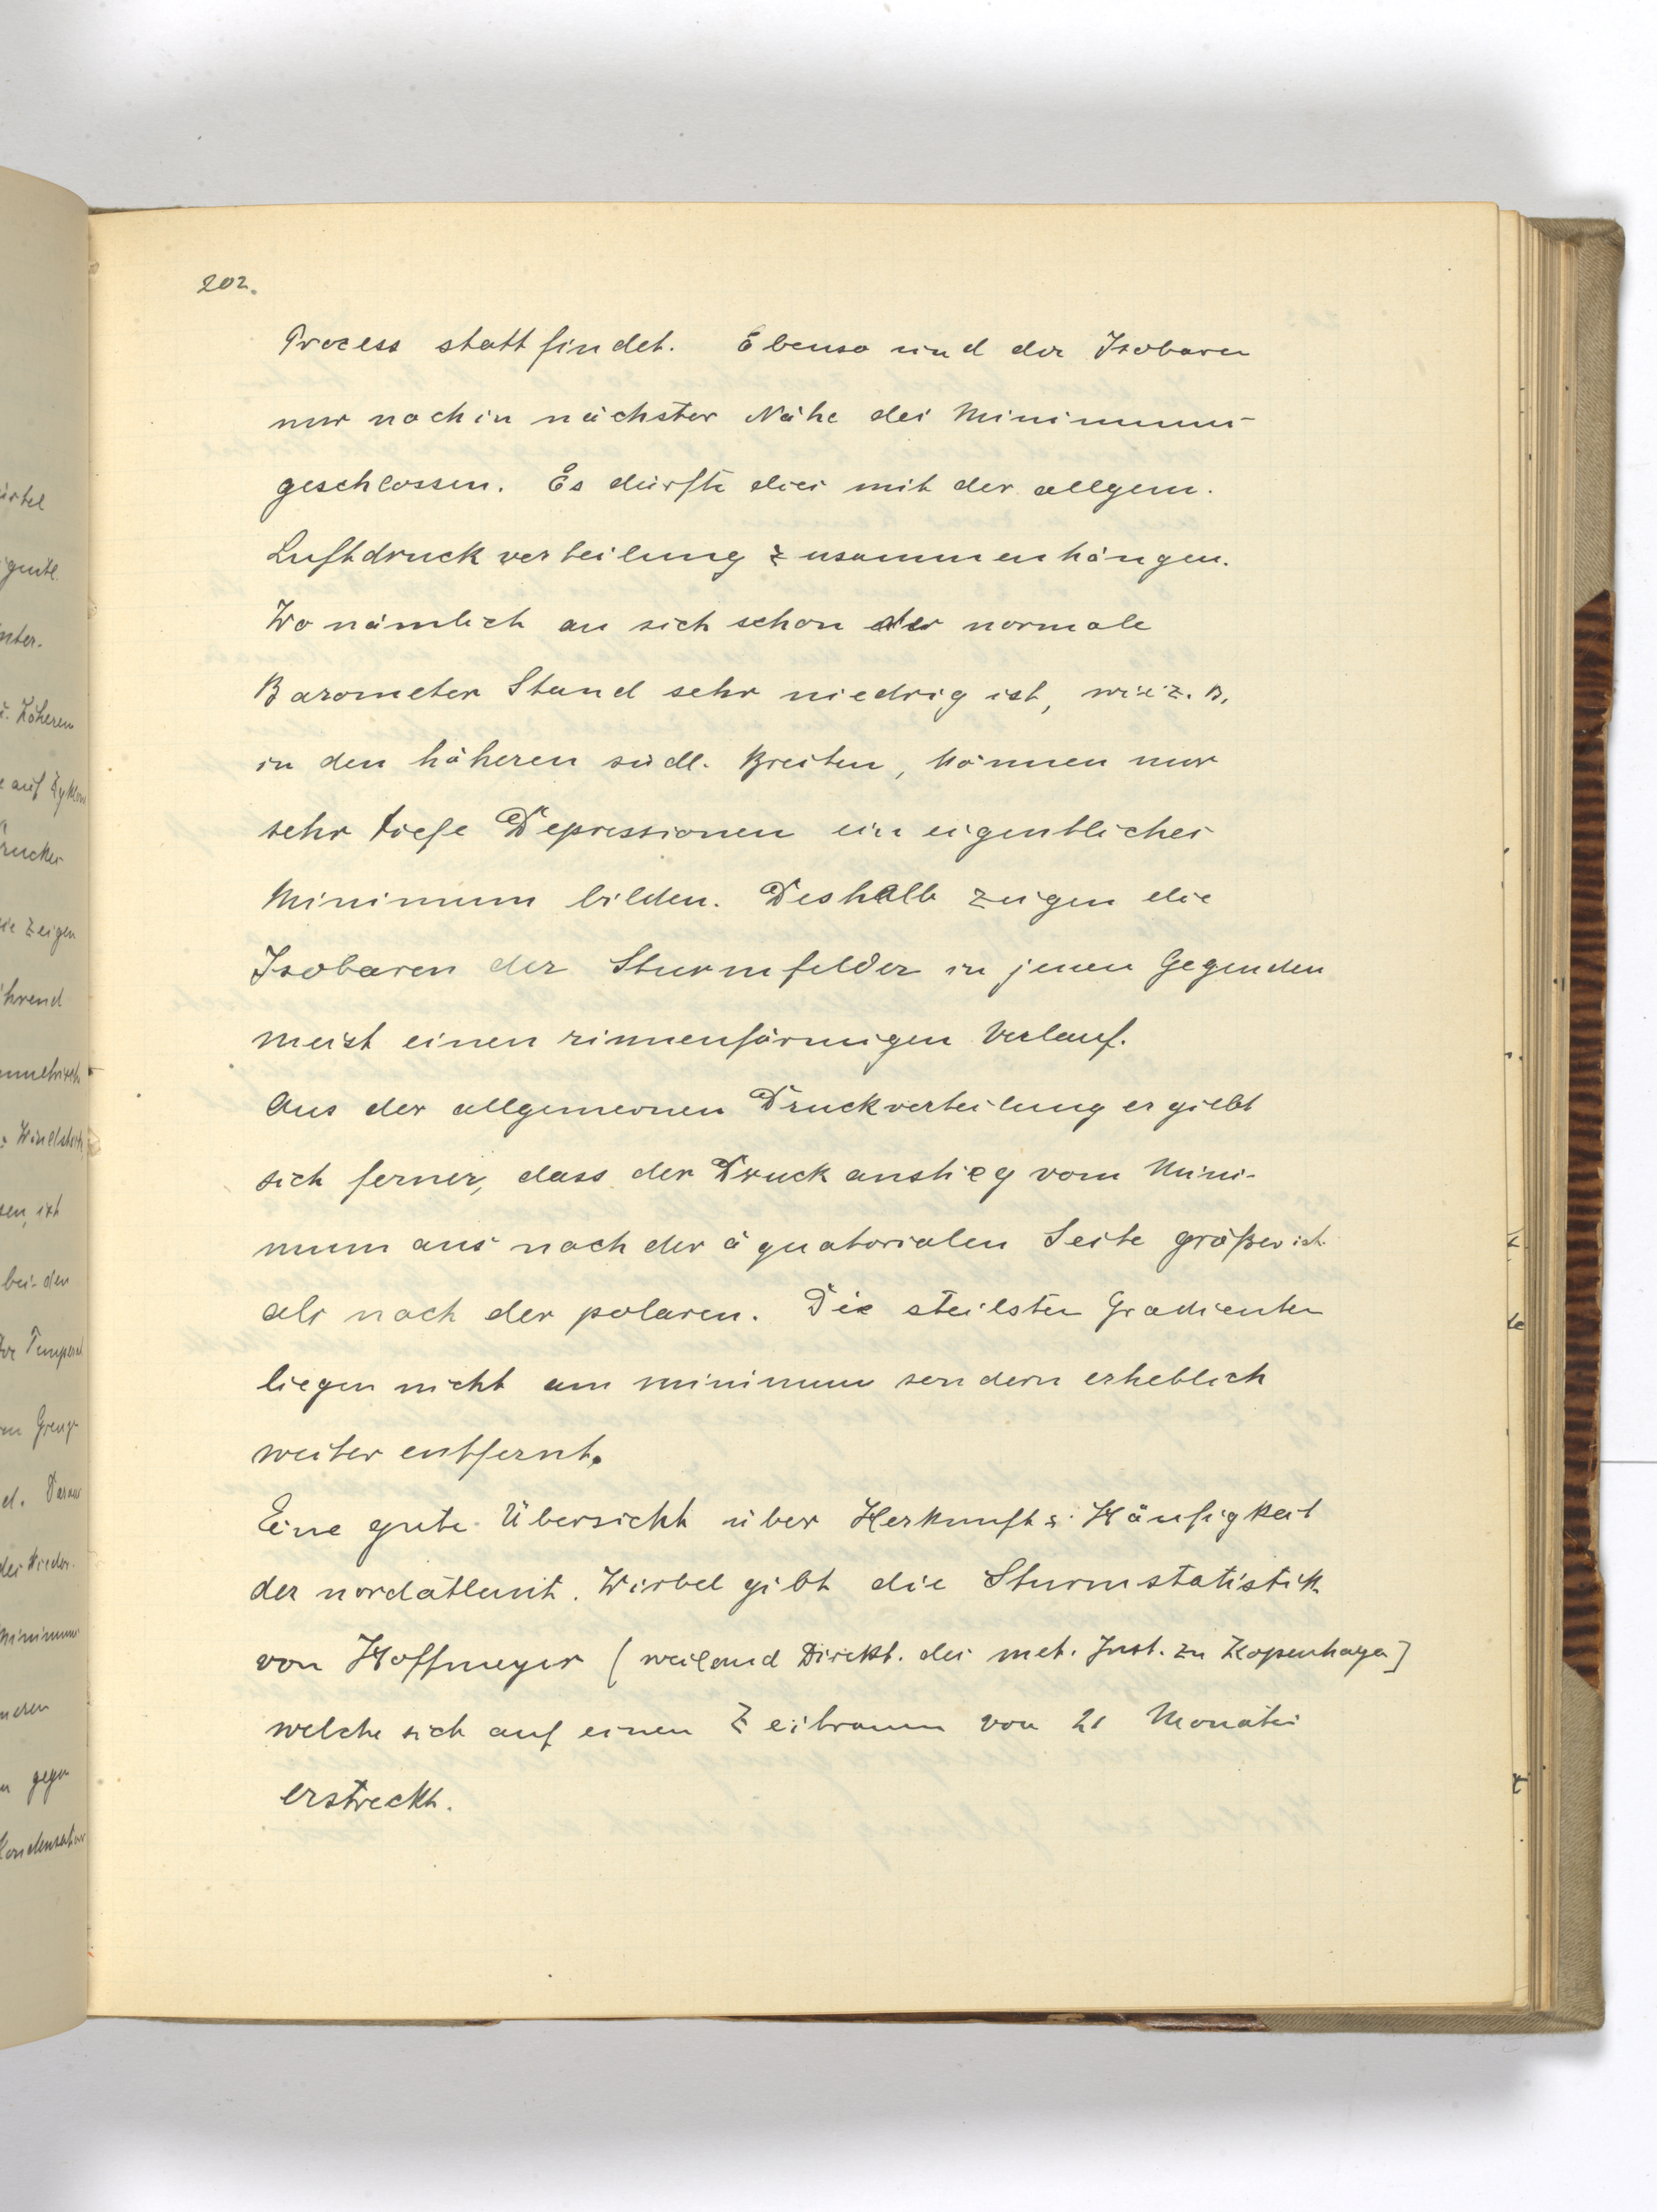 202.
Process stattfindet. Ebenso sind der Isobaren
nur noch in nächster Nähe des Minimums
geschlossen. Es dürfte dies mit der allgem.
Luftdruckverteilung zusammenhängen.
Wo nämlich an sich schon der normale
Barometer Stand sehr niedrig ist, wie z. B.
in den höheren südl. Breiten, können nur
sehr tiefe Depressionen ein eigentliches
Minimum bilden. Deshalb zeigen die
Isobaren der Sturmfelder in jenen Gegenden
meist einen rinnenförmigen Verlauf.
Aus der allgemeinen Druckverteilung ergiebt
sich ferner, dass der Druckanstieg vom Mini-
mum aus nach der äquatorialen Seite größer ist
als nach der polaren. Die steilsten Gradienten
liegen nicht am minimum sondern erheblich
weiter entfernt.
Eine gute Übersicht über Herkunft & Häufigkeit
der nordatlant. Wirbel gibt die Sturmstatistik
von Hoffmeyer (weiland Direkt. des met. Inst. zu Kopenhagen]
welche sich auf einen Zeitraum von 21 Monaten
erstreckt.
ürtel
nter.
Höheren
e auf Zyklon
ie zeigen
hrend
bei den
Minimum
n gegen
Kondensation